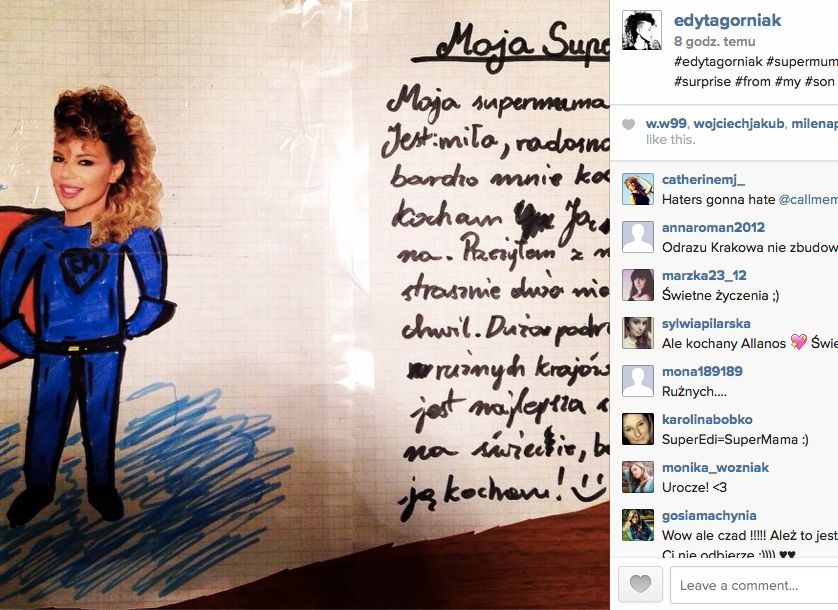 Moja Supe
Moja supermuma
Jest:miła, radosna
bardzo mnie ko
kocham
na. Przeżyłem z
strasznie dużo
chwil. Dużo podr
w rużnych krajów
jest najlepsza s
na świecie, b
ją kocham! :)
SM
edytagorniak
8 godz. temu
#edytagorniak #supermum
#surprise #from #my #son
w.w99, wojciechjakub, milenap
like this.
catherinemj_
Haters gonna hate @callmem
annaroman2012
Odrazu Krakowa nie zbudow
marzka23_12
Świetne życzenia ;)
sylwiapilarska
Ale kochany Allanos 💘 Świe
mona189189
Rużnych....
karolinabobko
SuperEdi=SuperMama :)
monika_wozniak
Urocze! <3
gosiamachynia
Wow ale czad !!!!! Ależ to jest
Ci nie odbierze :)))) ♥♥
Leave a comment...